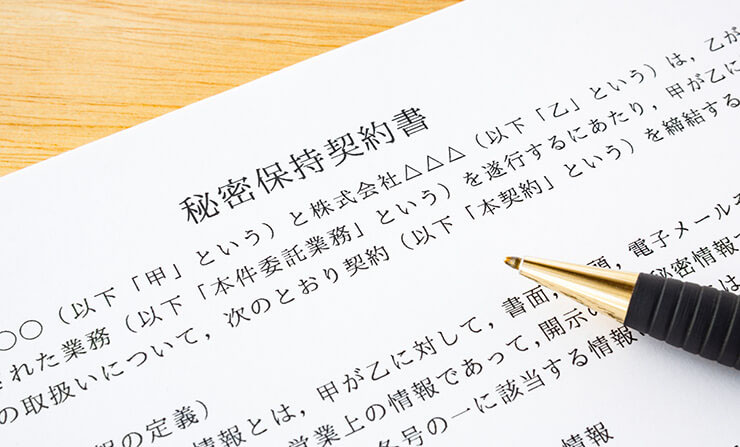 秘密保持契約書
○○(以下「甲」という)と株式会社△△△(以下「乙」という)は,乙が
された業務(以下「本件委託業務」という)を遂行するにあたり,甲が乙に
の取扱いについて,次のとおり契約(以下「本契約」という)を締結する
の定義)
情報とは,甲が乙に対して,書面,頭,電子メール
営業上の情報であって,開示 秘密情報
各号の一に該当する情報 は
情報